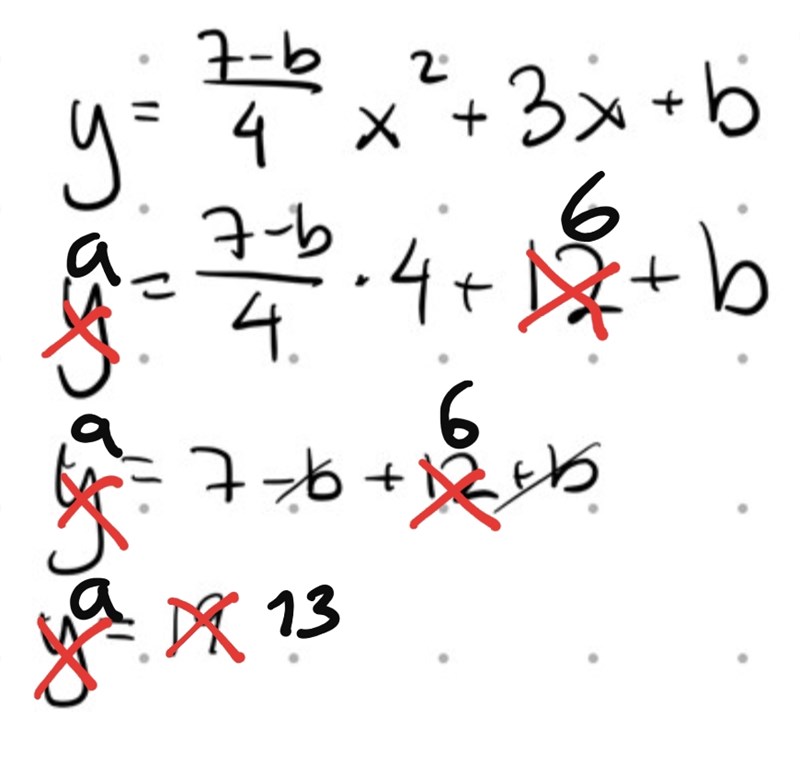 y = (7-b)/4 x² + 3x + b
a y = (7-b)/4 · 4 + 6 12 + b
a y = 7 - b + 6 12 + b
a y = 19 13